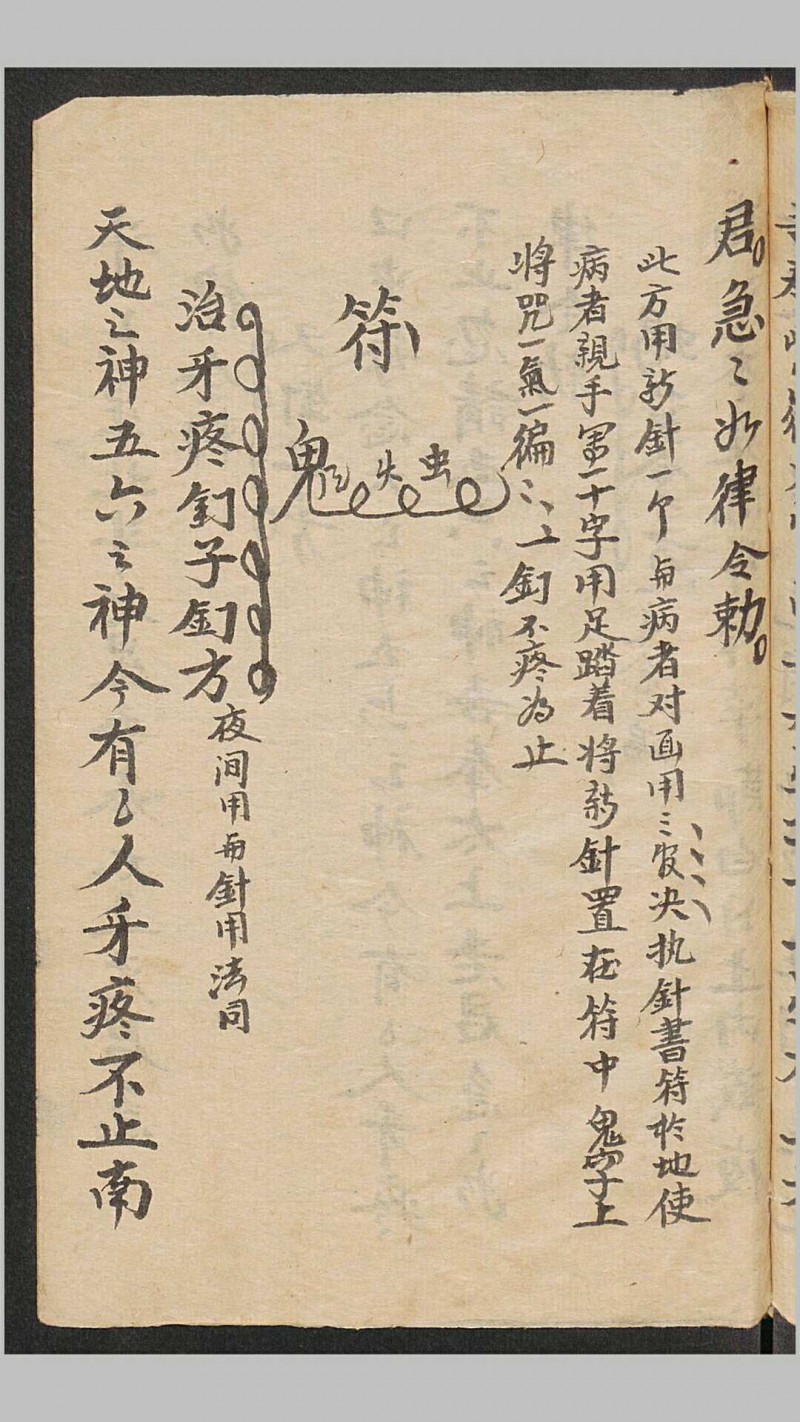 君急〻如律令勅
此方用新針一个与病者对面用三昧决执针書符於地使
病者親手畧一十字用足踏着将新針置在符中鬼字上
将咒一氣一徧〻一釘不疼為止
符
虫
鬼
治牙疼釘子釘方
夜间用与針用法同
天地之神五六之神今有〻人牙疼不止南